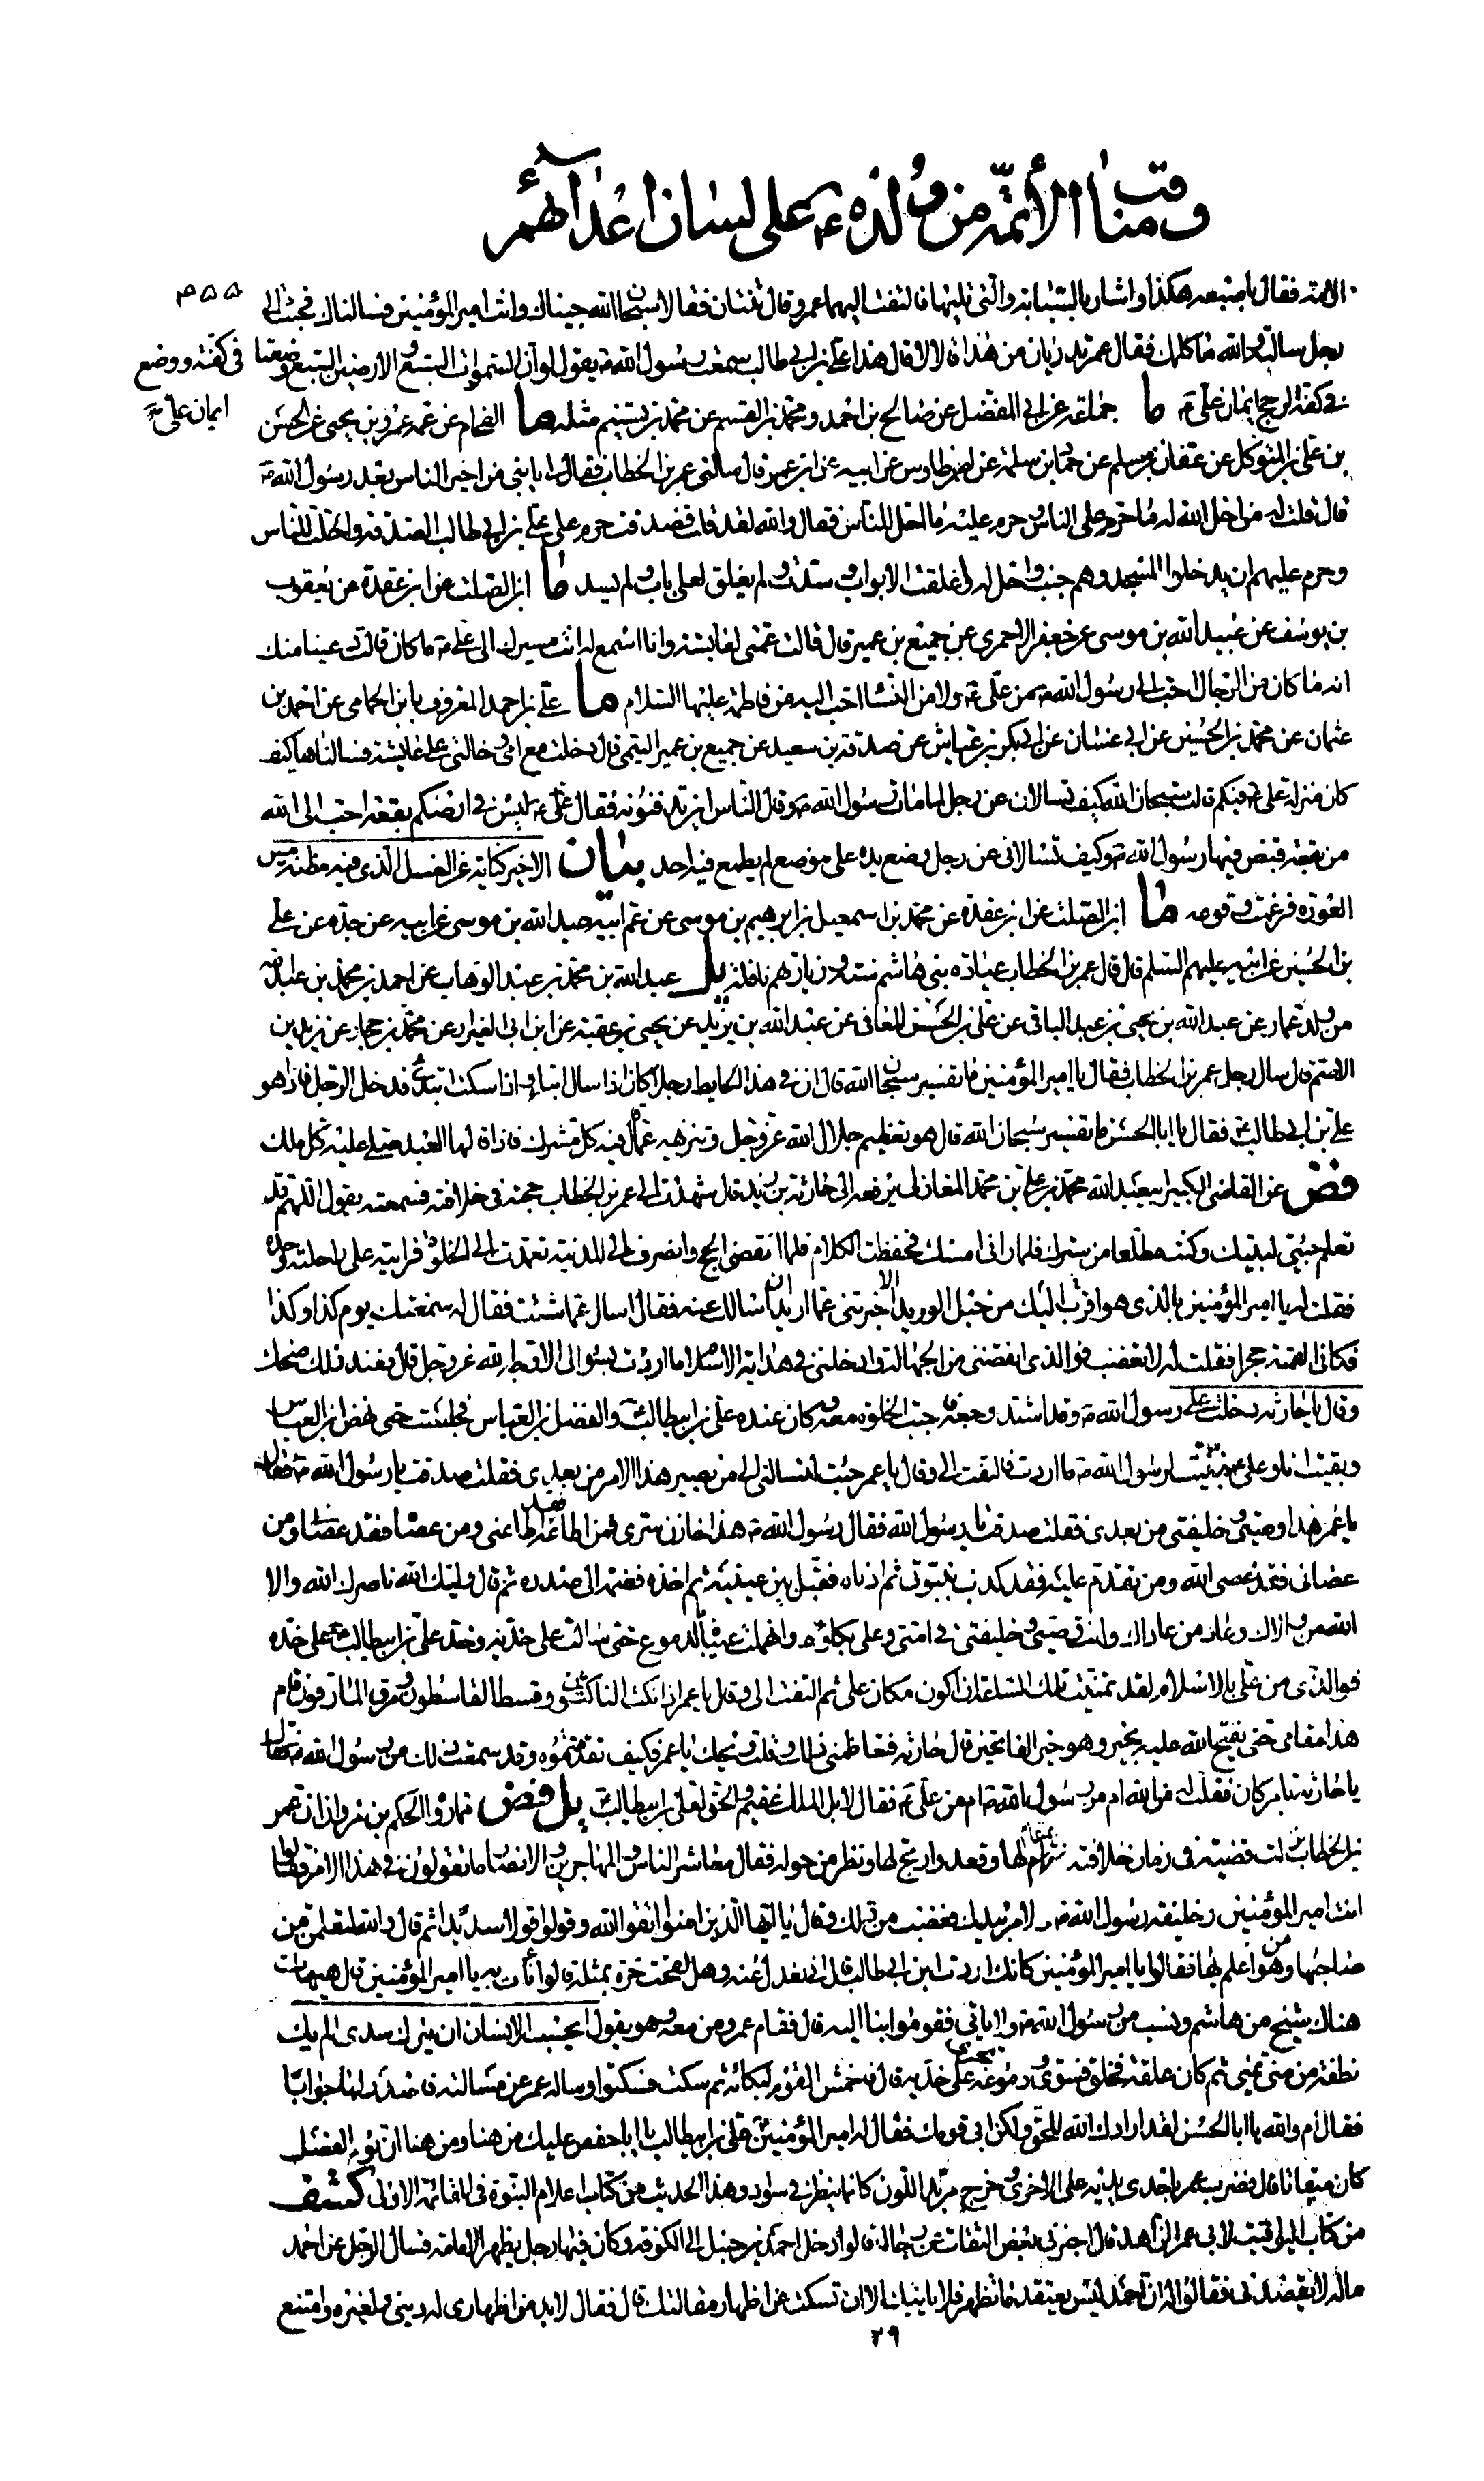 ومناقب الأئمة من ولده ع على لسان اعدائهم
٣٥٥
الامة فقال باصبعه هكذا واشار بالسبابة والتي تليها فالتفت اليهما عمر وقال ثنتان فقالا سبحان الله جيناك وانت امير المؤمنين فسالناك فجئت الى
رجل سالته والله ما كلمك فقال عمر تدريان من هذا قالا لا قال هذا علي بن ابي طالب سمعت رسول الله ص يقول لو ان السموات السبع والارضين السبع وضعتا في كفة ووضع
ايمان علي ع
في كفة لرجح ايمان علي ع ما جماعة عن ابي المفضل عن صالح بن احمد ومحمد بن القسم عن محمد بن تسنيم مثله ما الفحام عن عمه عمرو بن يحيى عن الحسن
بن علي بن المتوكل عن عفان بن مسلم عن حماد بن سلمة عن طاوس عن ابيه عن ابن عمر قال سالني عمر بن الخطاب فقال يا بني من اخير الناس بعد رسول الله ص
قال قلت له من احل الله له ما حرم على الناس وحرم عليه ما احل للناس فقال والله لقد قلت فصدقت حرم على علي بن ابي طالب الصدقة واحلت للناس
وحرم عليهم ان يدخلوا المسجد وهم جنب واحل له واغلقت الابواب وسدت ولم يغلق لعلي باب ولم يسد ما ابن الصلت عن ابن عقدة عن يعقوب
بن يوسف عن عبيد الله بن موسى عن جعفر الاحمري عن جميع بن عمير قال قالت عمتي لعايشة وانا اسمع له انت مسيرك الى علي ع ما كان قالت دعينا منك
انه ما كان من الرجال احب الى رسول الله ص من علي ع ولا من النساء احب اليه من فاطمة عليها السلام ما علي بن احمد المعروف بابن الحمامي عن احمد بن
عثمان عن محمد بن الحسين عن ابي غسان عن ابي بكر بن عياش عن صدقة بن سعيد عن جميع بن عمير التيمي قال دخلت مع امي وخالتي على عايشة فسالناها كيف
كان منزلة علي ع فيكم قالت سبحان الله كيف تسالان عن رجل لما مات رسول الله ص وقال الناس اين تدفنونه فقال علي ع ليس في ارضكم بقعة احب الى الله
من بقعة قبض فيها رسول الله ص وكيف تسالاني عن رجل وضع يده على موضع لم يطمع فيه احد بيان الاخير كناية عن الغسل الذي فيه مظنة مس
العورة فرغبت وقومه ما ابن الصلت عن ابن عقدة عن محمد بن اسمعيل بن ابرهيم بن موسى عن عم ابيه عبد الله بن موسى عن ابيه عن جده عن علي
بن الحسين عن ابيه عليهم السلم قال قال عمر بن الخطاب عيادة بني هاشم سنة وزيارتهم نافلة يل عبد الله بن محمد بن عبد الوهاب عن احمد بن محمد بن عبد الله
من ولد عمار عن عبد الله بن يحيى بن عبد الباقي عن علي بن الحسن المعافى عن عبد الله بن يزيد عن يحيى بن عقبة عن ابن ابي الغيرار عن محمد بن حجار عن يزيد بن
الاصم قال سال رجل عمر بن الخطاب فقال يا امير المؤمنين ما تفسير سبحان الله قال ان في هذا الحايط رجلا كان اذا سال انبا واذا سكت ابتدئ فدخل الرجل فاذا هو
علي بن ابي طالب ع فقال يا ابا الحسن ما تفسير سبحان الله قال هو تعظيم جلال الله عز وجل وتنزهيه عما قال فيه كل مشرك فاذا قالها العبد صلى عليه كل ملك
فض عن القاضي الكبير ابي عبد الله محمد بن علي بن محمد المغازلي يرفعه الى حارثة بن زيد قال شهدت الى عمر بن الخطاب حجته في خلافته فسمعته يقول اللهم قد
تعلم جيئتي لبيتك وكنت مطلعا من سترك فلما راني امسك فحفظت الكلام فلما انقضى الحج وانصرف الى المدينة تعمدت الى الخلوة فرايته على راحلته وحده
فقلت له يا امير المؤمنين بالذي هو اقرب اليك من حبل الوريد الا اخبرتني عما اريد ان اسالك عنه فقال اسال عما شئت فقال له سمعتك يوم كذا وكذا
فكاني القمته حجرا فقلت له لا تغضب فوالذي انقذني من الجهالة وادخلني في هداية الاسلام ما اردت بسؤالي الا وجه الله عز وجل قال فعند ذلك ضحك
وقال يا حارثة دخلت على رسول الله ص وقد اشتد وجعه واحببت الخلوة معه وكان عنده علي بن ابيطالب ع والفضل بن العباس فجلست حتى نهض ابن العباس
وبقيت انا وعلي ع فتبينت لرسول الله ص ما اردت فالتفت الي وقال يا عمر جئت لتسالني الى من يصير هذا الامر من بعدي فقلت صدقت يا رسول الله ص فقال
يا عمر هذا وصيي وخليفتي من بعدي فقلت صدقت يا رسول الله فقال رسول الله ص هذا خازن سري فمن اطاعه فقد اطاعني ومن عصاه فقد عصاني ومن
عصاني فقد عصى الله ومن تقدم عليه فقد كذب بنبوتي ثم ادناه فقبل بين عينيه ثم اخذه فضمه الى صدره ثم قال وليك الله ناصرك الله والا
الله من والاك وعاد من عاداك وانت وصيي وخليفتي في امتي وعلى بكاؤه وانهملت عيناه بالدموع حتى سالت على خديه وخد علي بن ابيطالب ع على خده
فوالذي من علي بالاسلام لقد تمنيت تلك الساعة ان اكون مكان علي ثم التفت الي وقال يا عمر اذا نكث الناكثون وقسط القاسطون ومرق المارقون قام
هذا مقامي حتى يفتح الله عليه بخير وهو خير الفاتحين قال حارثة فتعاظمني ذلك وقلت ويحك يا عمر فكيف تقدمتموه وقد سمعت ذلك من رسول الله ص فقال
يا حارثة بامر كان فقلت له من الله ام من رسول الله ص ام من علي ع فقال لا بل الملك عقيم والحق لعلي بن ابيطالب ع يل فض مما رواه الحكم بن مروان ان عمر
بن الخطاب نزلت قضية في زمان خلافته فقام لها وقعد وارتج لها ونظر من حوله فقال معاشر الناس والمهاجرين والانصار ما تقولون في هذا الامر فقالوا
انت امير المؤمنين وخليفة رسول الله ص والامر بيديك فغضب من ذلك وقال يا ايها الذين امنوا اتقوا الله وقولوا قولا سديدا ثم قال والله لتعلمن من
صاحبها ومن هو اعلم بها فقالوا يا امير المؤمنين كانك اردت ابن ابي طالب قال انى نعدل عنه وهل لقحت حرة بمثله قالوا نات به يا امير المؤمنين قال هيهات
هناك شيخ من هاشم ونسب من رسول الله ص ولا ياتي فقوموا بنا اليه قال فقام عمر ومن معه وهو يقول ايحسب الانسان ان يترك سدى الم يك
نطفة من مني يمنى ثم كان علقة فخلق فسوى ودموعه تجري على خديه قال فاخمش القوم لبكائه ثم سكت فسكتوا وساله عمر عن مسالته فاصدر لها جوابا
فقال ام والله يا ابا الحسن لقد ارادك الله للحق ولكن ابى قومك فقال له امير المؤمنين علي بن ابيطالب يا ابا حفص عليك من هنا ومن هنا ان يوم الفصل
كان ميقاتا قال فضرب عمر باحدى يديه على الاخرى وخرج مربد اللون كانما ينظر في سواد وهذا الحديث من كتاب اعلام النبوة في القائمة الاولى كشف
من كتاب اليواقيت لابي عمر الزاهد قال اخبرني بعض الثقات عن رجاله قالوا دخل احمد بن حنبل الى الكوفة وكان فيها رجل يظهر الامامة فسال الرجل عن احمد
ماله لا يقصدني فقالوا له ان احمد ليس يعتقد ما تظهر فلا ياتيك الا ان تسكت عن اظهار مقالتك قال فقال لابد من اظهاري له ديني ولغيره وامتنع
٢٩